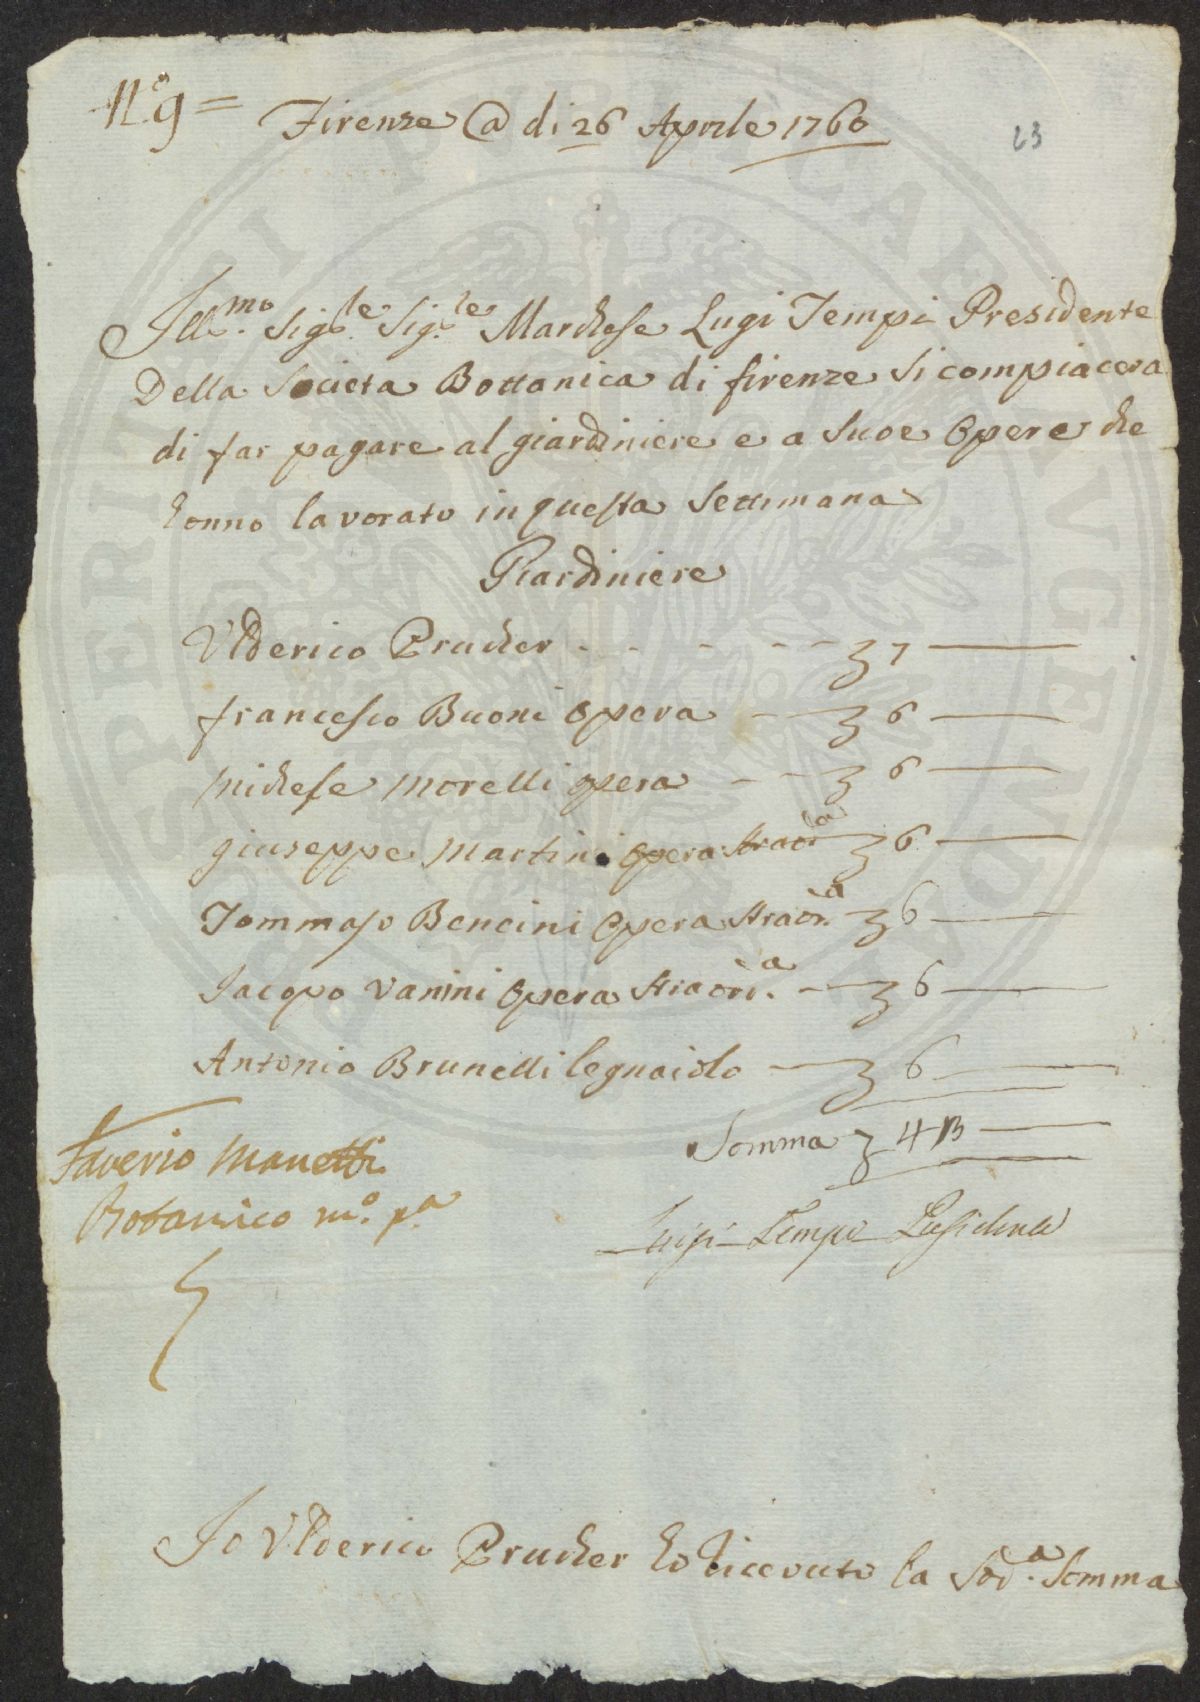 N.º 9 =
Firenze @ di 26 Aprile 1760
23
Ill.mo Sig.le Sig.le Marchese Lugi Tempi Presidente
Della Societa Bottanica di firenze si compiacera
di far pagare al giardiniere e a Suoe Opere che
honno lavorato in questa Settimana
Giardiniere
Vlderico Prucher - - - - - - 7 —
francesco Buoni Opera - - 6 —
Michele Morelli Opera - - - 6 —
giuseppe Martini Opera Straor.la 6 —
Tommaso Bencini Opera Straor.ia 6 —
Jacopo Vanini Opera Straori.a - 6 —
Antonio Brunelli legnaiolo — 6 —
Somma 43 —
Saverio Manetti
Botanico m.º p.a
Luigi Tempi Presidente
Io Vlderico Prucher ho riceuto la Sod.a Somma
PROSPERITATI PVBLICAE AVGENDAE